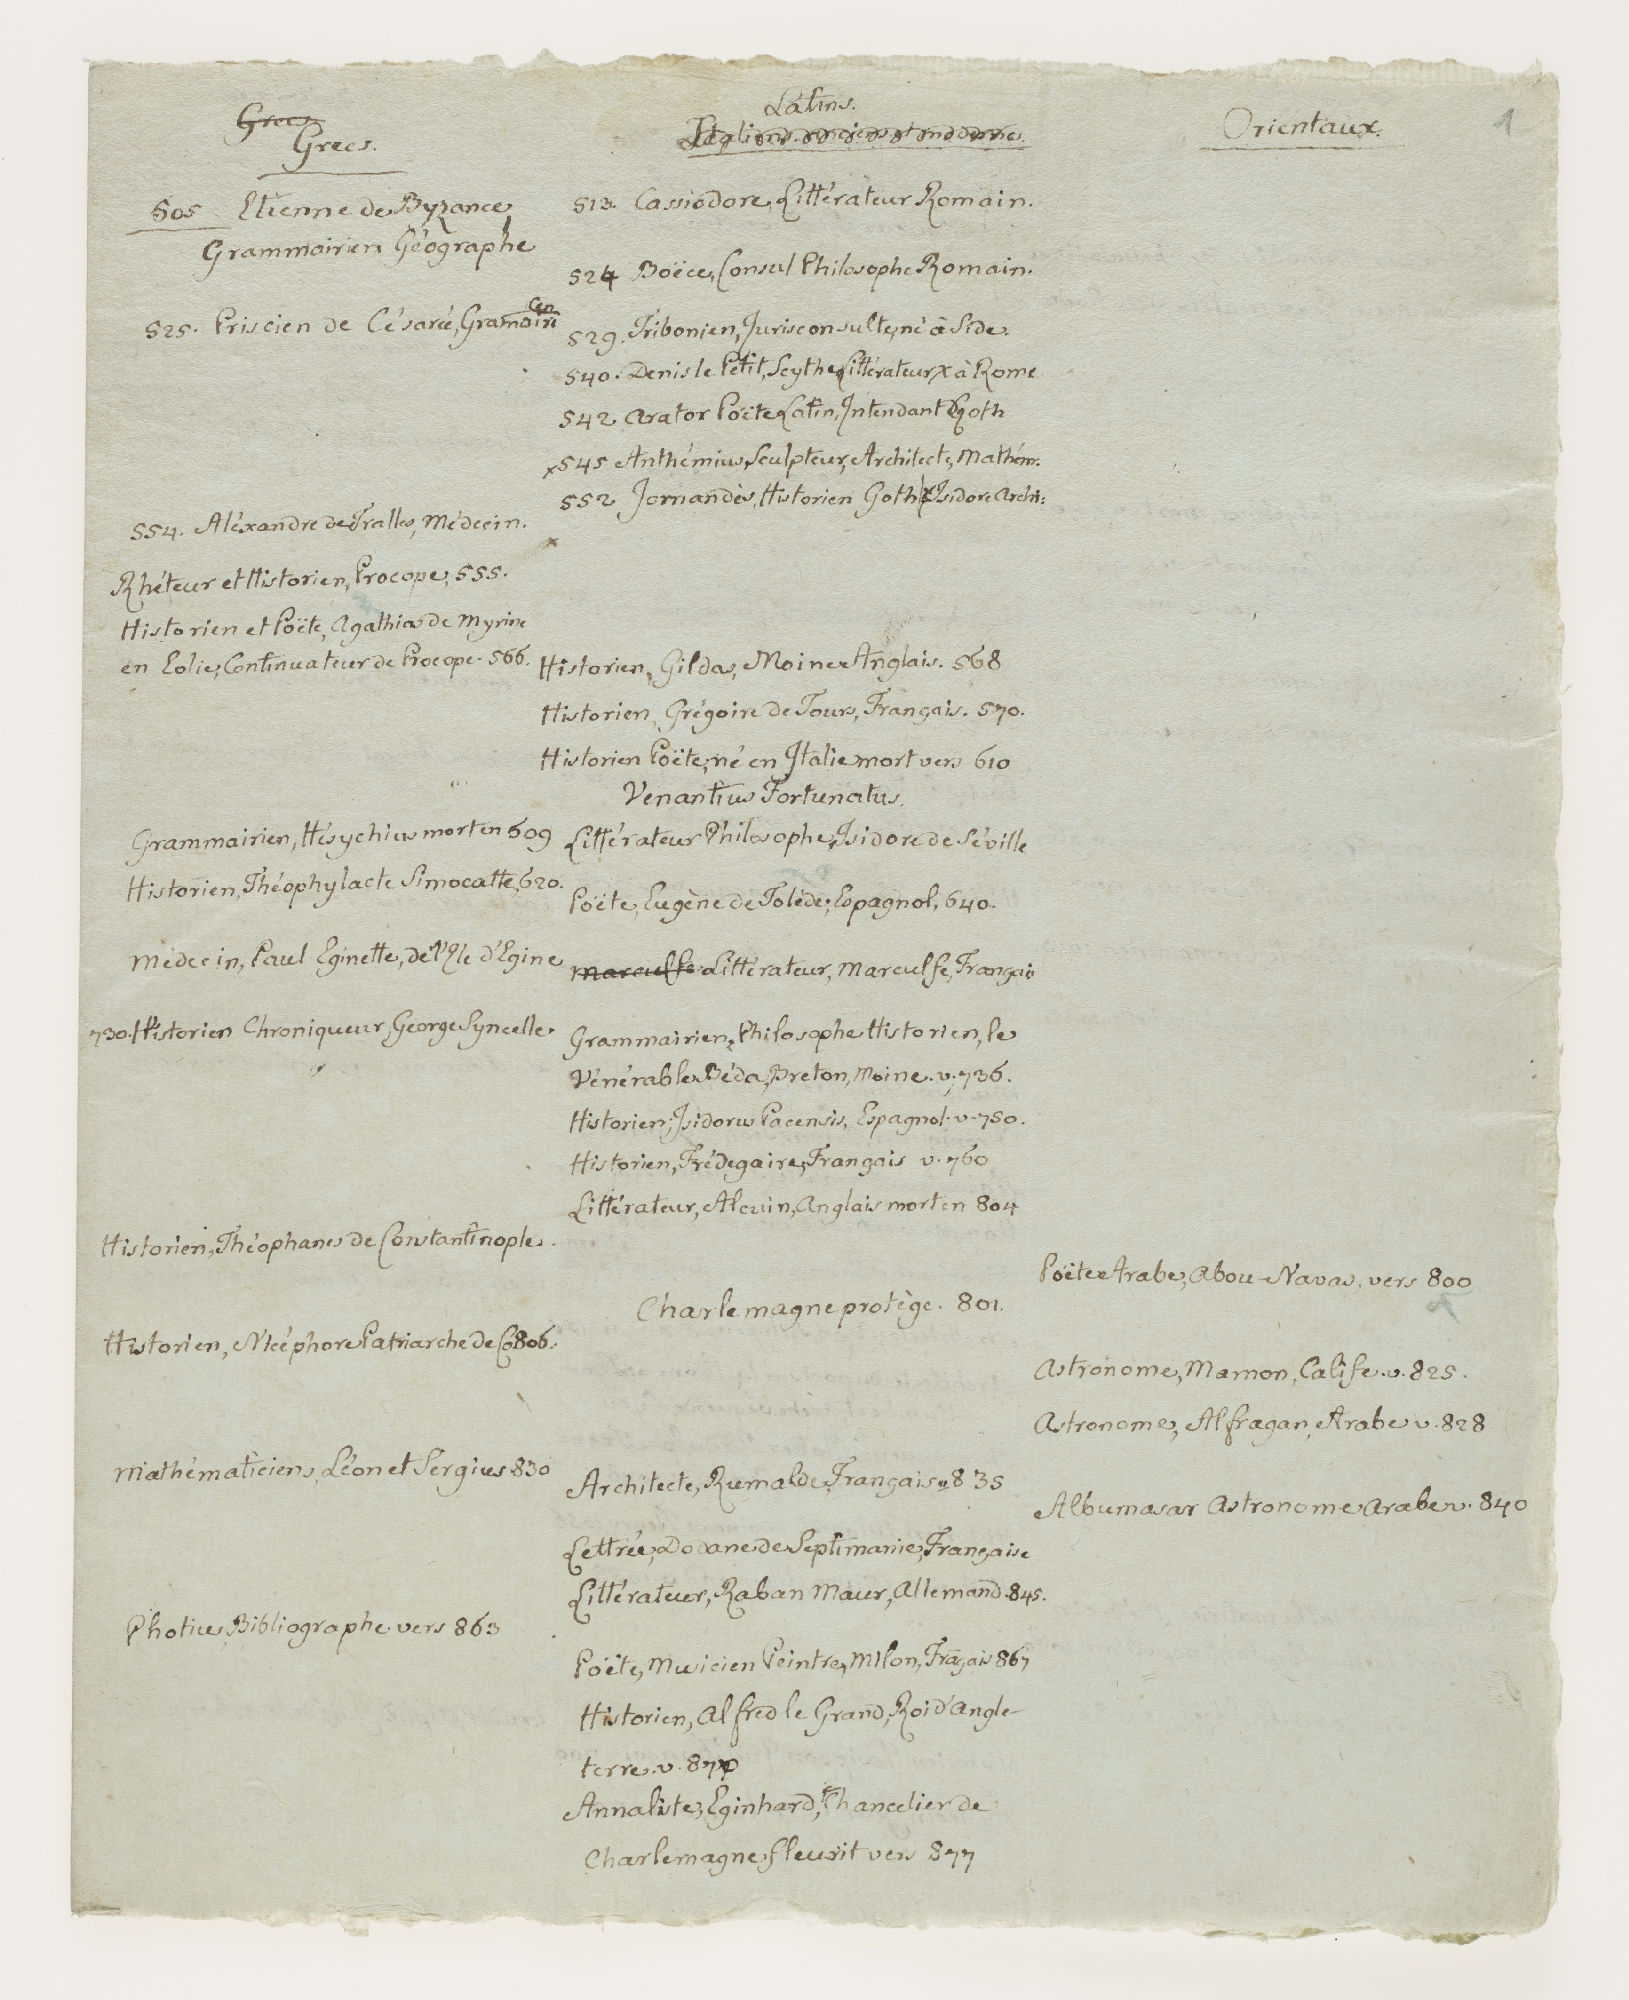 Grecs
Grecs.
505 Etienne de Byzance,
Grammairien Géographe
525. Priscien de Césarée, Gramairien
554. Aléxandre de Tralles, Médecin.
Rhéteur et Historien, Procope, 555.
Historien et Poëte, Agathias de Myrine
en Eolie, Continuateur de Procope. 566.
Grammairien, Hésychius mort en 609
Historien, Théophylacte Simocatte, 620.
Médecin, Paul Eginette, de l'Ile d'Egine
730. Historien Chroniqueur, George Syncelle.
Historien, Théophanes de Constantinople.
Historien, Nicéphore Patriarche de Co 806.
Mathématiciens, Léon et Sergius 830
Photius, Bibliographe vers 863
Latins.
Italiens anciens et modernes.
513. Cassiodore, Littérateur Romain.
524 Boëce, Consul Philosophe Romain.
529. Tribonien, Jurisconsulte, né à Side.
540. Denis le Petit, Scythe Littérateur x à Rome
542 Arator Poëte Latin, Intendant Goth
x545 Anthémius, Sculpteur, Architecte, Mathém:
552 Jornandès, Historien Goth x Isidore Archi:
x
Historien, Gildas, Moine Anglais. 568
Historien, Grégoire de Tours, Français. 570.
Historien Poëte, né en Italie mort vers 610
Venantius Fortunatus.
Littérateur Philosophe, Isidore de Séville
Poëte, Eugène de Tolède, Espagnol, 640.
Marculfe Littérateur, Marculfe, Français
Grammairien, Philosophe Historien, le
Vénérable Béda, Breton, Moine. v. 736.
Historien, Isidorus Pacensis, Espagnol. v. 750.
Historien, Frédegaire, Français v. 760
Littérateur, Alcuin, Anglais mort en 804
Charlemagne protège. 801.
Architecte, Rumalde, Français v 835
Lettrée, Dodane de Septimanie, Française
Littérateur, Raban Maur, Allemand. 845.
Poëte, Musicien Peintre, Milon, Frāçais 867
Historien, Alfred le Grand, Roi d'Angle-
terre. v. 87
Annaliste, Eginhard, Chancelier de
Charlemagne fleurit vers 877
Orientaux.
1
Poëte Arabe, Abou-Navas, vers 800
Astronome, Mamon, Calife. v. 825.
Astronome, Alfragan, Arabe v. 828
Albumasar Astronome Arabe v. 840